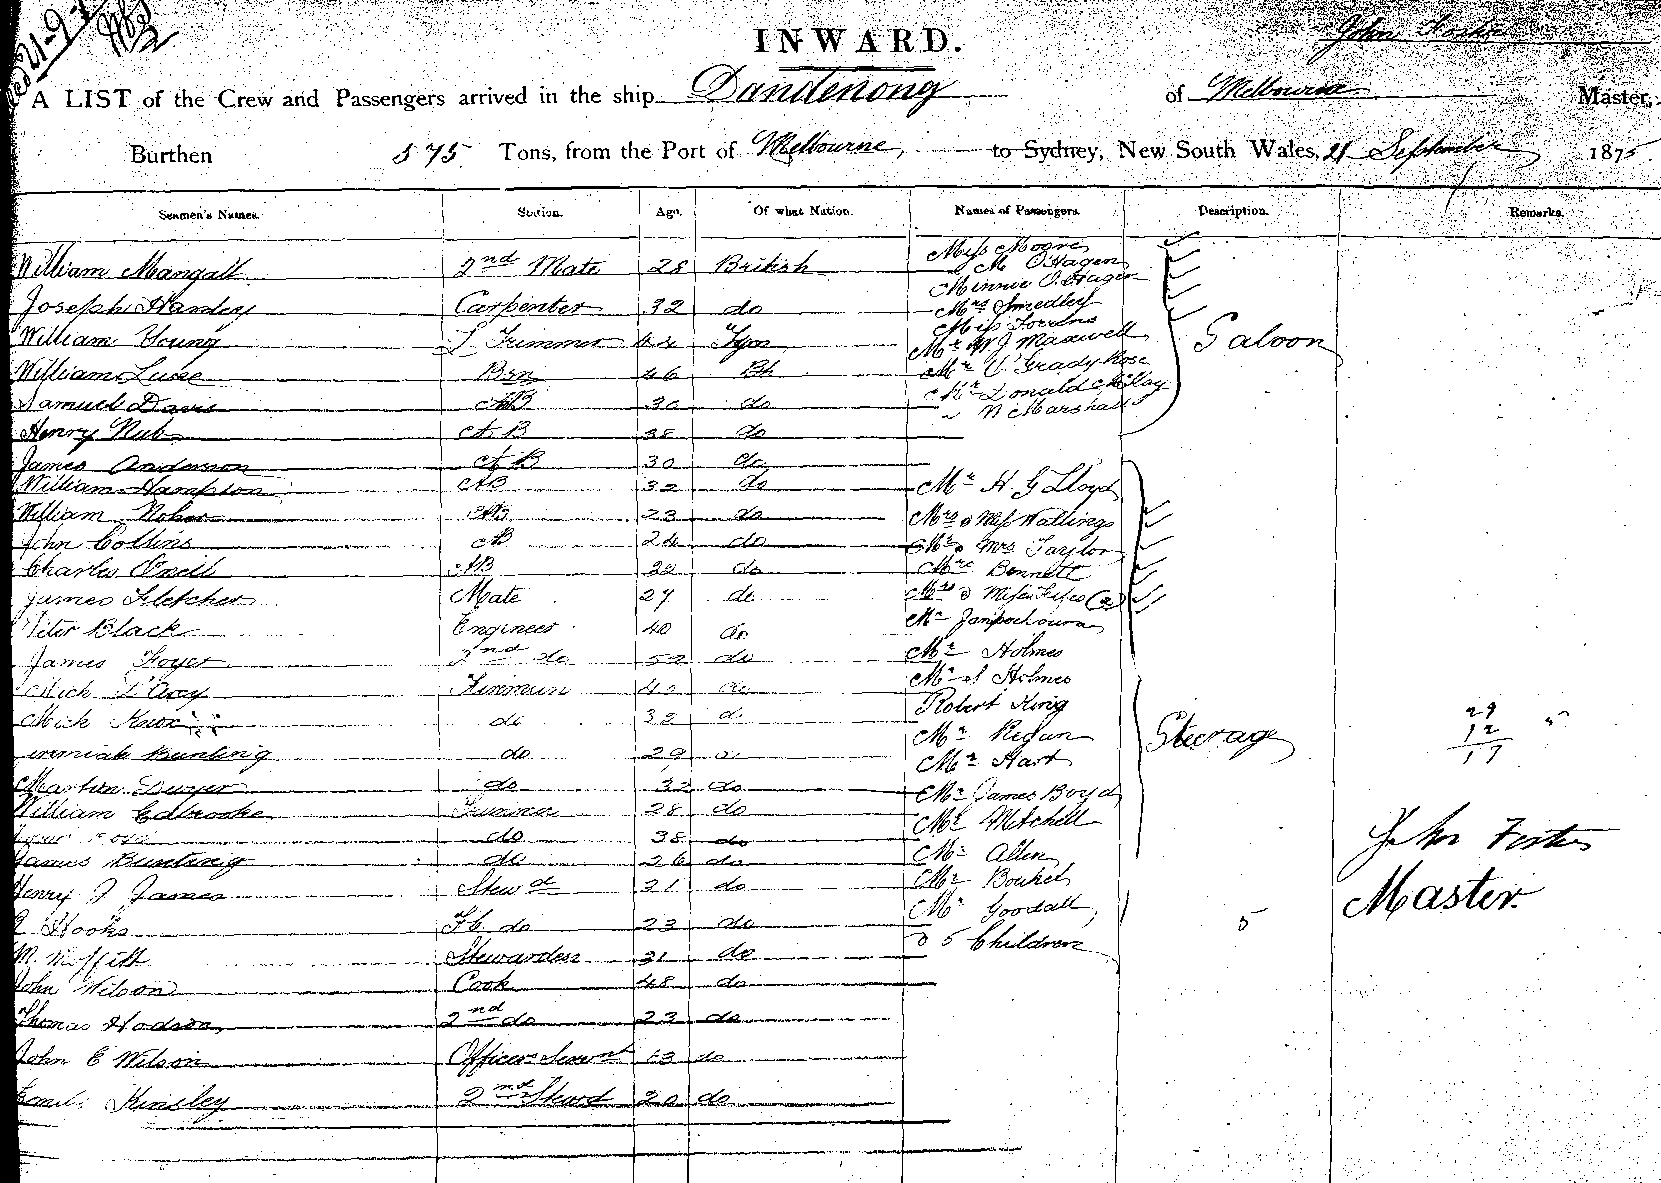 INWARD.
John Foster
A LIST of the Crew and Passengers arrived in the ship Dandenong of Melbourne Master,
Burthen 575 Tons, from the Port of Melbourne, to Sydney, New South Wales, 21 September 1875
Seamen's Names. Station. Age. Of what Nation. Names of Passengers. Description. Remarks.
Miss Moore
William Mangall 2nd Mate 28 British " M O'Hagen
Minnie O'Hagen
Joseph Hanley Carpenter 32 do Mrs Smedley
Miss
William Young Trimmer 44 Mr W J Maxwell Saloon
William Luse Bsn 46 Bh Mr V Grady Rose
Samuel Davis AB 30 do Mr Donald McKay
" N Marshall
Henry Nub AB 38 do
James Anderson AB 30 do
William Hampton AB 32 do Mr H G Lloyd
William AB 23 do Mrs & Miss Wallings
John Collins AB 24 do Mr & Mrs Taylor
Charles Onell AB do Mrs Bennett
James Fletcher Mate 27 do Mrs & Misses (2)
Peter Black Engineer 40 do Mr
James Foyer 2nd do 52 do Mr Holmes
Mich D'Arcy Fireman 40 do Mr S Holmes
Mick Knox do 32 do Robert King
Bunting do 29 Mr Regan Steerage
Mr Hart
29
12
17
Martin Dwyer do 32 do Mr James Boyd
William Edbrooke Trimmer 28 do Mr Mitchell
do 38 do
James Bunting do 26 do Mr Allen
John Foster
Master
Henry J James Stewd 21 do Mr
Hooks do 23 do Mr Goodall 5
M. Moffitt Stewardess 31 do & 5 Children
John Wilson Cook 48 do
Thomas Hodson 2nd do 23 do
John E Wilson Officers Servnt 13 do
Kinsley 2nd Stewd 20 do